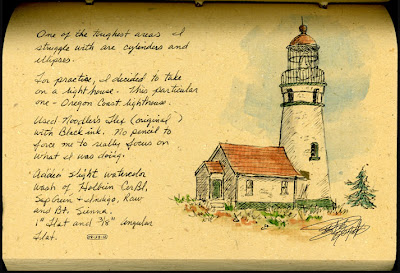 One of the toughest areas I
struggle with are cylenders and
ellipses.
For practise, I decided to take
on a lighthouse. This particular
one - Oregon Coast lighthouse.
Used Noodler's Flex (original)
with Black ink. No pencil to
force me to really focus on
what I was doing.
Added slight watercolor
wash of Holbein Cer Bl,
Sap Green & Indigo, Raw
and Bt. Sienna.
1" flat and 3/8" angular
flat.